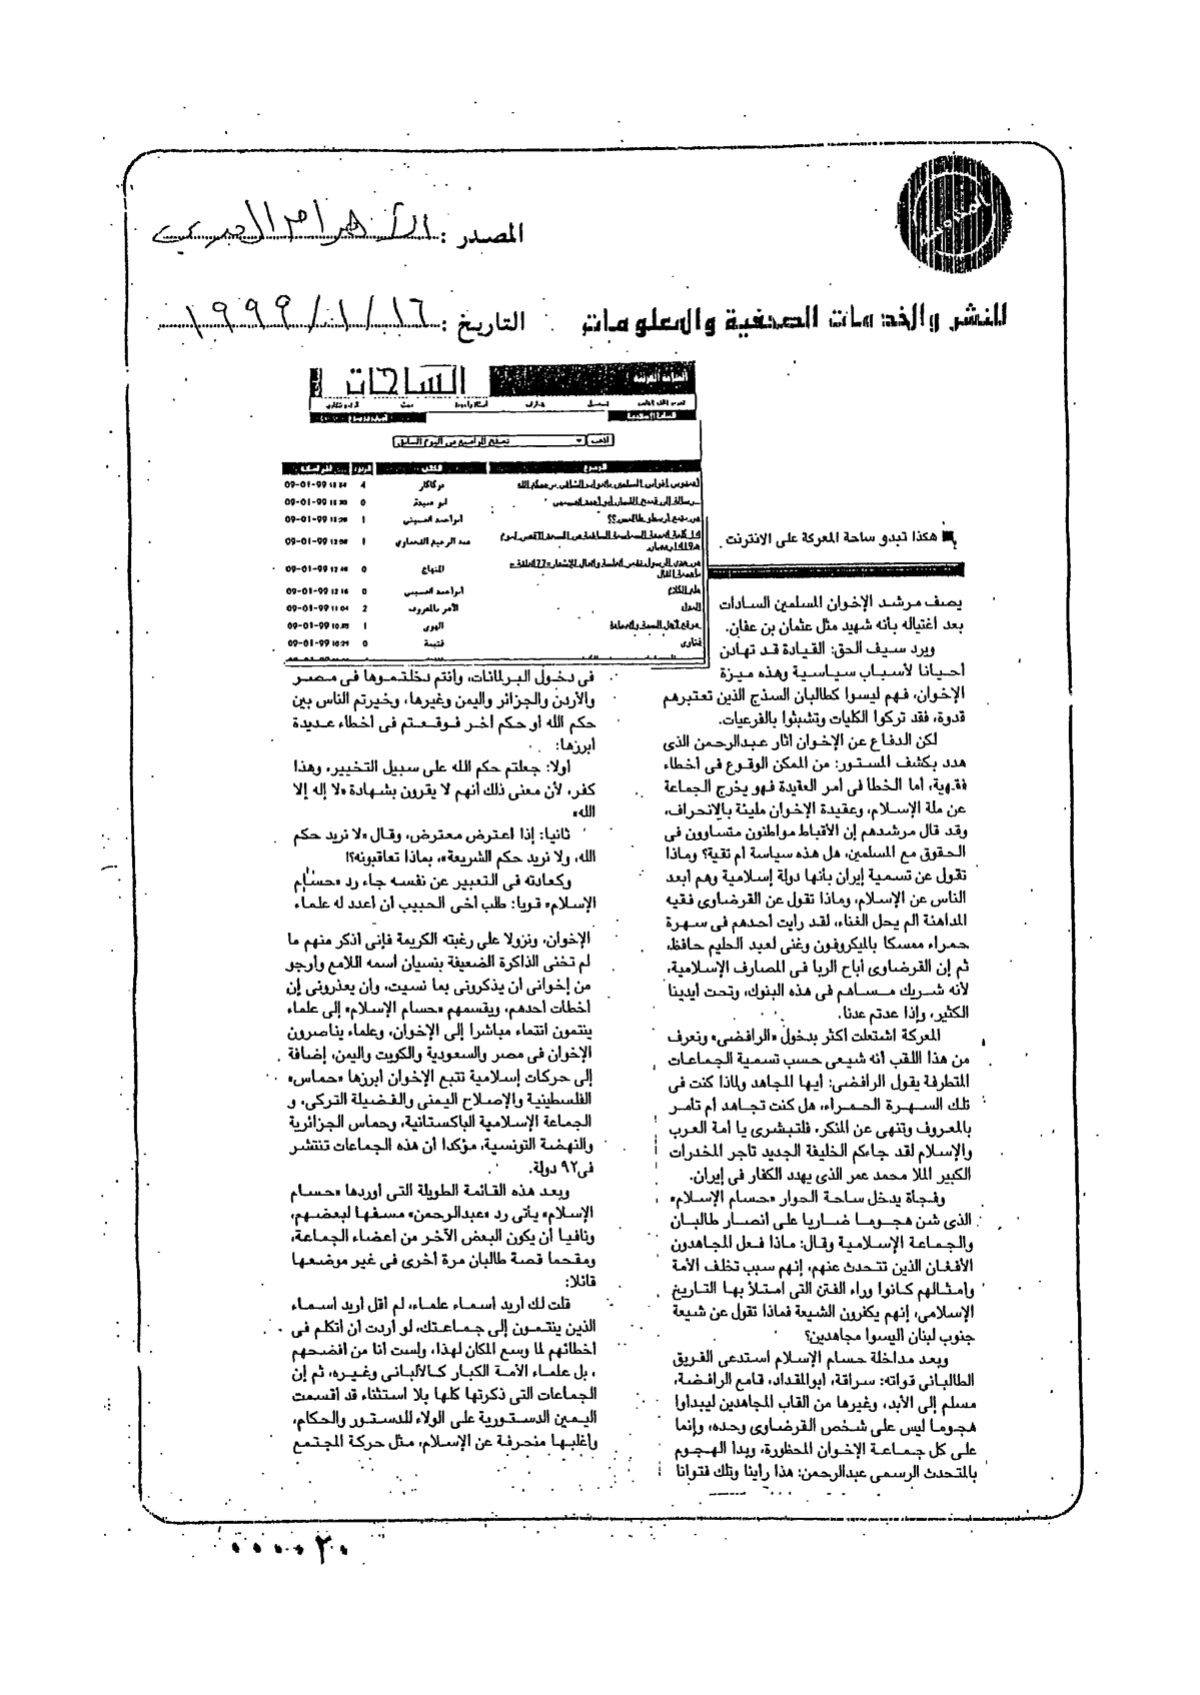 المصدر : الأهرام العربي
للنشر والخدمات الصحفية والمعلومات
التاريخ : ١٦ / ١ / ١٩٩٩
الساحات
اذهب
الموضوع
الكاتب
الردود
09-01-99
4
ابو عبيدة
0
09-01-99
ابو احمد الحسيني
1
09-01-99
عبد الرحيم الانصاري
1
09-01-99
المنهاج
0
09-01-99 12 16
0
ابو احمد الحسيني
علم الكلام
09-01-99 11 04
2
الأمر بالمعروف
العدل
09-01-99
1
الهوى
09-01-99
0
قتيبة
فتاوى
هكذا تبدو ساحة المعركة على الانترنت
يصف مرشد الإخوان المسلمين السادات
بعد اغتياله بأنه شهيد مثل عثمان بن عفان.
ويرد سيف الحق: القيادة قد تهادن
أحيانا لأسباب سياسية وهذه ميزة
الإخوان، فهم ليسوا كطالبان السذج الذين تعتبرهم
قدوة، فقد تركوا الكليات وتشبثوا بالفرعيات.
لكن الدفاع عن الإخوان أثار عبدالرحمن الذى
هدد بكشف المستور: من الممكن الوقوع فى أخطاء
فقهية، أما الخطأ فى أمر العقيدة فهو يخرج الجماعة
عن ملة الإسلام، وعقيدة الإخوان مليئة بالانحراف،
وقد قال مرشدهم إن الأقباط مواطنون متساوون فى
الحقوق مع المسلمين، هل هذه سياسة أم تقية؟ وماذا
تقول عن تسمية إيران بأنها دولة إسلامية وهم أبعد
الناس عن الإسلام، وماذا تقول عن القرضاوى فقيه
المداهنة الم يحل الغناء، لقد رأيت أحدهم فى سهرة
حمراء ممسكا بالميكروفون وغنى لعبد الحليم حافظ،
ثم إن القرضاوى أباح الربا فى المصارف الإسلامية،
لأنه شريك مساهم فى هذه البنوك، وتحت أيدينا
الكثير، وإذا عدتم عدنا.
المعركة اشتعلت أكثر بدخول «الرافضى» ونعرف
من هذا اللقب أنه شيعى حسب تسمية الجماعات
المتطرفة يقول الرافضى: أيها المجاهد ولماذا كنت فى
تلك السهرة الحمراء، هل كنت تجاهد أم تأمر
بالمعروف وتنهى عن المنكر، فلتبشرى يا أمة العرب
والإسلام لقد جاءكم الخليفة الجديد تاجر المخدرات
الكبير الملا محمد عمر الذى يهدد الكفار فى إيران.
وفجأة يدخل ساحة الحوار «حسام الإسلام»
الذى شن هجوما ضاريا على أنصار طالبان
والجماعة الإسلامية وقال: ماذا فعل المجاهدون
الأفغان الذين تتحدث عنهم، إنهم سبب تخلف الأمة
وأمثالهم كانوا وراء الفتن التى امتلأ بها التاريخ
الإسلامى، إنهم يكفرون الشيعة فماذا تقول عن شيعة
جنوب لبنان اليسوا مجاهدين؟
وبعد مداخلة حسام الإسلام استدعى الفريق
الطالبانى قواته: سراقة، أبوالمقداد، قامع الرافضة،
مسلم إلى الأبد، وغيرها من القاب المجاهدين ليبدأوا
هجوما ليس على شخص القرضاوى وحده، وإنما
على كل جماعة الإخوان المحظورة، وبدأ الهجوم
بالمتحدث الرسمى عبدالرحمن: هذا رأينا وتلك فتوانا
فى دخول البرلمانات، وأنتم دخلتموها فى مصر
والأردن والجزائر واليمن وغيرها، وخيرتم الناس بين
حكم الله أو حكم آخر فوقعتم فى أخطاء عديدة
أبرزها:
أولا: جعلتم حكم الله على سبيل التخيير، وهذا
كفر، لأن معنى ذلك أنهم لا يقرون بشهادة «لا إله إلا
الله»
ثانيا: إذا اعترض معترض، وقال «لا نريد حكم
الله، ولا نريد حكم الشريعة»، بماذا تعاقبونه؟!
وكعادته فى التعبير عن نفسه جاء رد «حسام
الإسلام» قويا: طلب أخى الحبيب أن أعدد له علماء
الإخوان، ونزولا على رغبته الكريمة فإنى أذكر منهم ما
لم تخنى الذاكرة الضعيفة بنسيان اسمه اللامع وأرجو
من إخوانى أن يذكرونى بما نسيت، وأن يعذرونى إن
أخطأت أحدهم، ويقسمهم «حسام الإسلام» إلى علماء
ينتمون انتماء مباشرا إلى الإخوان، وعلماء يناصرون
الإخوان فى مصر والسعودية والكويت واليمن، إضافة
إلى حركات إسلامية تتبع الإخوان أبرزها «حماس»
الفلسطينية والإصلاح اليمنى والفضيلة التركى، و
الجماعة الإسلامية الباكستانية، وحماس الجزائرية
والنهضة التونسية، مؤكدا أن هذه الجماعات تنتشر
فى٩٢ دولة.
وبعد هذه القائمة الطويلة التى أوردها «حسام
الإسلام» يأتى رد «عبدالرحمن» مسفها لبعضهم،
ونافيا أن يكون البعض الآخر من أعضاء الجماعة،
ومقحما قصة طالبان مرة أخرى فى غير موضعها
قائلا:
قلت لك أريد أسماء علماء، لم أقل أريد أسماء
الذين ينتمون إلى جماعتك، لو أردت أن أتكلم فى
أخطائهم لما وسع المكان لهذا، ولست أنا من أفضحهم
، بل علماء الأمة الكبار كالألبانى وغيره، ثم إن
الجماعات التى ذكرتها كلها بلا استثناء قد أقسمت
اليمين الدستورية على الولاء للدستور والحكام،
وأغلبها منحرفة عن الإسلام، مثل حركة المجتمع
٠٠٠٠٢٠